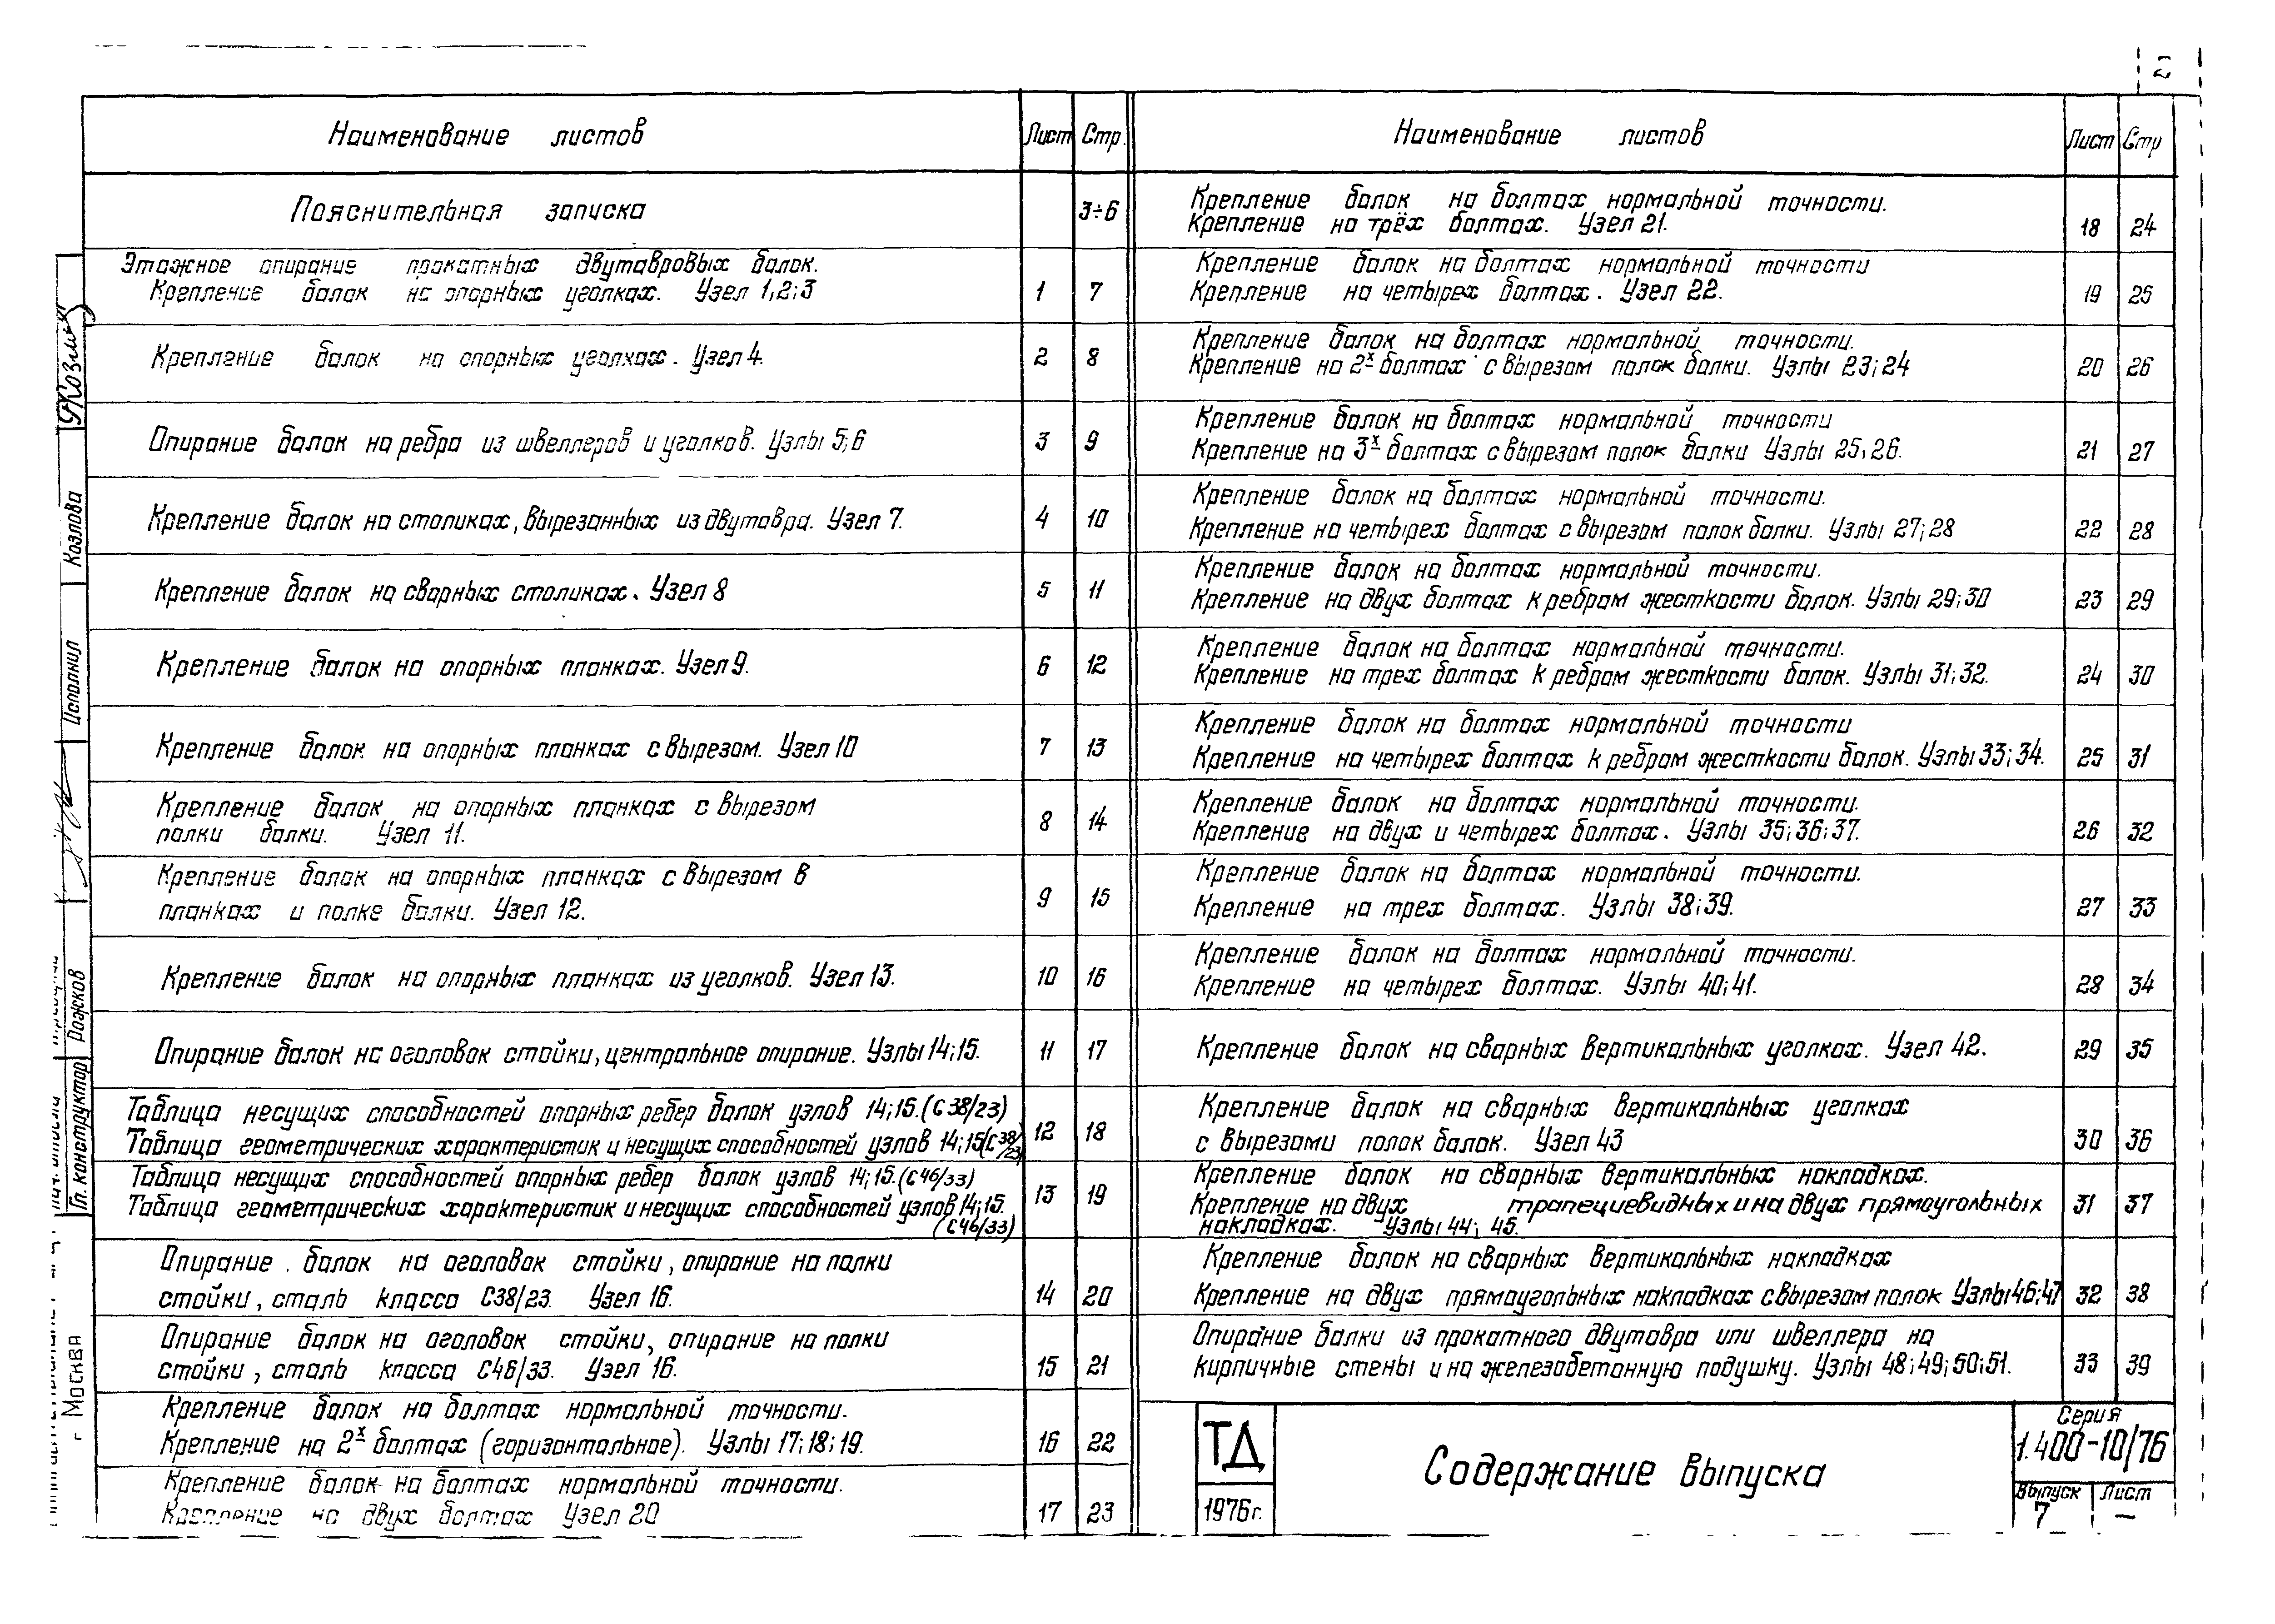 2
Наименование листов Лист Стр.
Пояснительная записка 3÷6
Этажное опирание прокатных двутавровых балок.
Крепление балок на опорных уголках. Узел 1,2;3 1 7
Крепление балок на опорных уголках. Узел 4. 2 8
Опирание балок на ребра из швеллеров и уголков. Узлы 5;6 3 9
Крепление балок на столиках, вырезанных из двутавра. Узел 7. 4 10
Крепление балок на сварных столиках. Узел 8 5 11
Крепление балок на опорных планках. Узел 9. 6 12
Крепление балок на опорных планках с вырезом. Узел 10 7 13
Крепление балок на опорных планках с вырезом
полки балки. Узел 11. 8 14
Крепление балок на опорных планках с вырезом в
планках и полке балки. Узел 12. 9 15
Крепление балок на опорных планках из уголков. Узел 13. 10 16
Опирание балок на оголовок стойки, центральное опирание. Узлы 14;15. 11 17
Таблица несущих способностей опорных ребер балок узлов 14;15. (С38/23)
Таблица геометрических характеристик и несущих способностей узлов 14;15 (С38/23) 12 18
Таблица несущих способностей опорных ребер балок узлов 14;15. (С46/33)
Таблица геометрических характеристик и несущих способностей узлов 14;15. 13 19
(С46/33)
Опирание балок на оголовок стойки, опирание на полки
стойки, сталь класса С38/23. Узел 16. 14 20
Опирание балок на оголовок стойки, опирание на полки
стойки, сталь класса С46/33. Узел 16. 15 21
Крепление балок на болтах нормальной точности.
Крепление на 2х болтах (горизонтальное). Узлы 17;18;19. 16 22
Крепление балок на болтах нормальной точности.
Крепление на двух болтах Узел 20 17 23
Наименование листов Лист Стр
Крепление балок на болтах нормальной точности.
Крепление на трёх болтах. Узел 21. 18 24
Крепление балок на болтах нормальной точности
Крепление на четырех болтах. Узел 22. 19 25
Крепление балок на болтах нормальной точности.
Крепление на 2х болтах с вырезом полок балки. Узлы 23;24 20 26
Крепление балок на болтах нормальной точности
Крепление на 3х болтах с вырезом полок балки Узлы 25;26. 21 27
Крепление балок на болтах нормальной точности.
Крепление на четырех болтах с вырезом полок балки. Узлы 27;28 22 28
Крепление балок на болтах нормальной точности.
Крепление на двух болтах к ребрам жесткости балок. Узлы 29;30 23 29
Крепление балок на болтах нормальной точности.
Крепление на трех болтах к ребрам жесткости балок. Узлы 31;32. 24 30
Крепление балок на болтах нормальной точности
Крепление на четырех болтах к ребрам жесткости балок. Узлы 33;34. 25 31
Крепление балок на болтах нормальной точности.
Крепление на двух и четырех болтах. Узлы 35;36;37. 26 32
Крепление балок на болтах нормальной точности.
Крепление на трех болтах. Узлы 38;39. 27 33
Крепление балок на болтах нормальной точности.
Крепление на четырех болтах. Узлы 40;41. 28 34
Крепление балок на сварных вертикальных уголках. Узел 42. 29 35
Крепление балок на сварных вертикальных уголках
с вырезами полок балок. Узел 43 30 36
Крепление балок на сварных вертикальных накладках.
Крепление на двух трапециевидных и на двух прямоугольных 31 37
накладках. Узлы 44; 45.
Крепление балок на сварных вертикальных накладках
Крепление на двух прямоугольных накладках с вырезом полок Узлы 46;47 32 38
Опирание балки из прокатного двутавра или швеллера на
кирпичные стены и на железобетонную подушку. Узлы 48;49;50;51. 33 39
ТД
1976г.
Содержание выпуска
Серия
1.400-10/76
Выпуск Лист
7 —
Козлова
Исполнил
Рожков
Гл. конструктор
г Москва